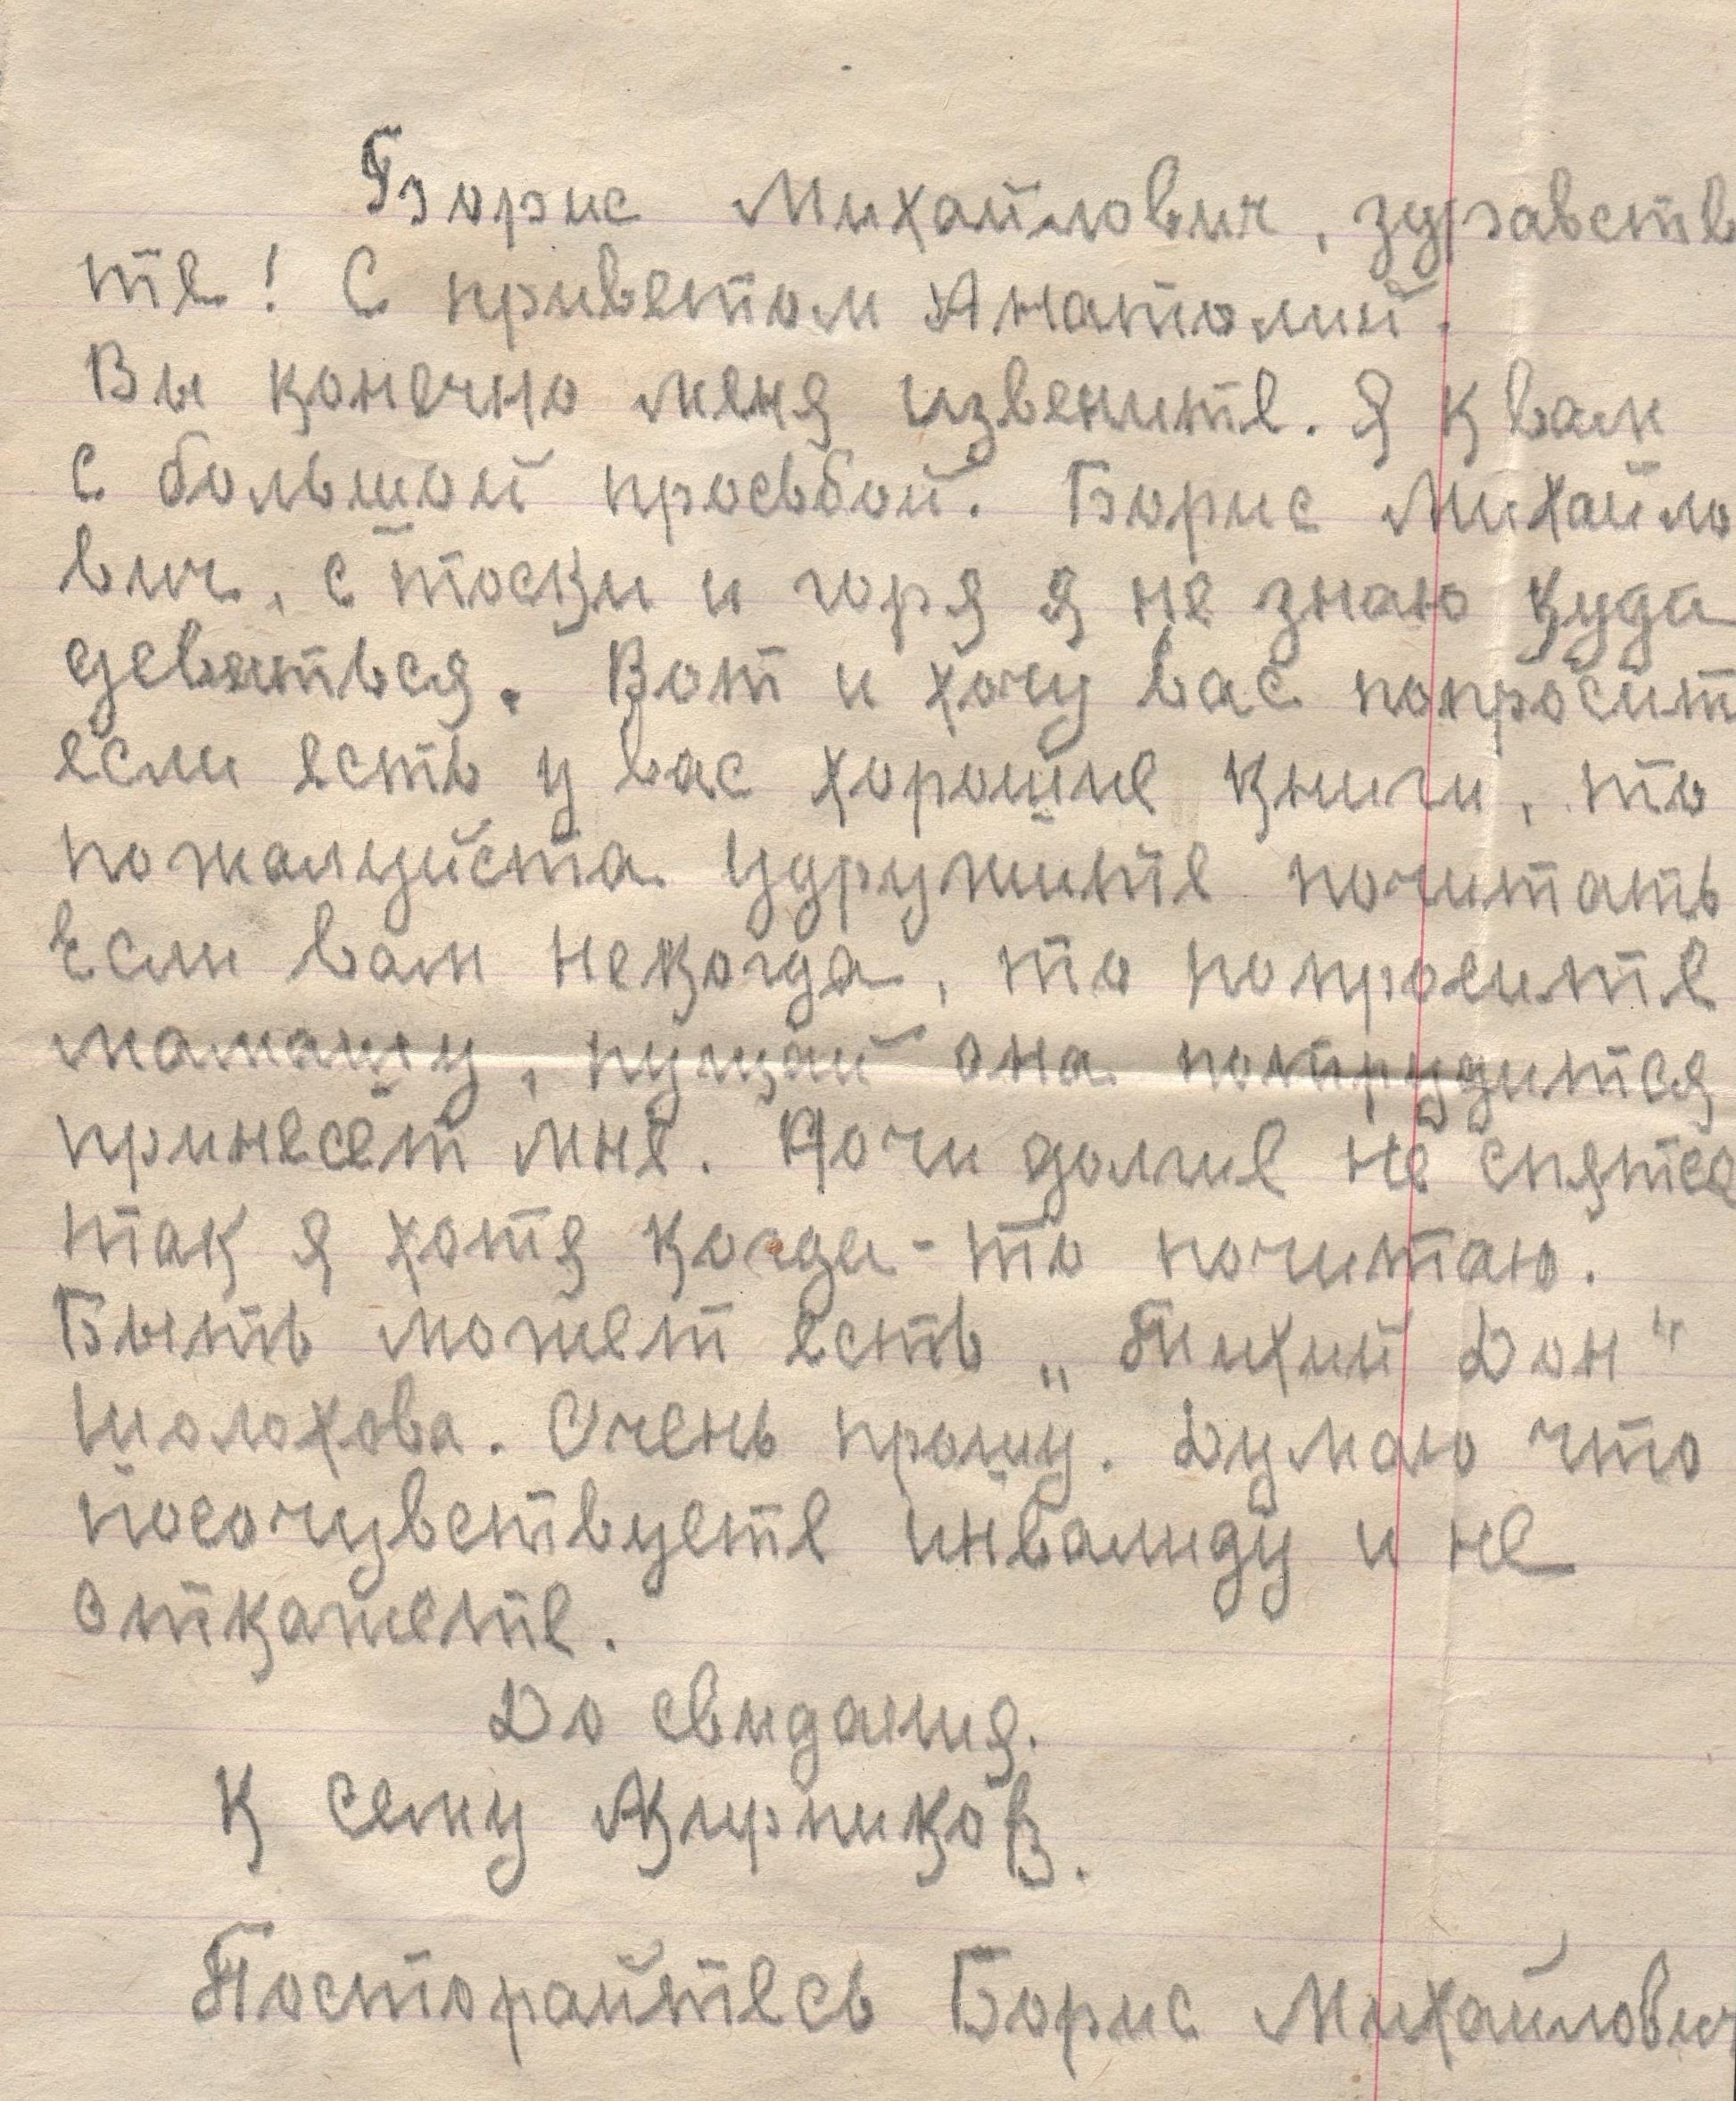 Борис Михайлович, здравств
те! С приветом Анатолий.
Вы конечно меня извените. Я к вам
с большой просьбой. Борис Михайло
вич, с тоски и горя я не знаю куда
деваться. Вот и хочу вас попросит
если есть у вас хорошие книги, то
пожалуйста удружите почитать
Если вам некогда, то попросите
мамашу, пущай она потрудится
принесёт мне. Ночи долгие не спятся
так я хотя когда-то почитаю.
Быть может есть „Тихий Дон"
Шолохова. Очень прошу. Думаю что
посочувствуете инвалиду и не
откажете.
До свидания.
К сему
Посторайтесь Борис Михайлович